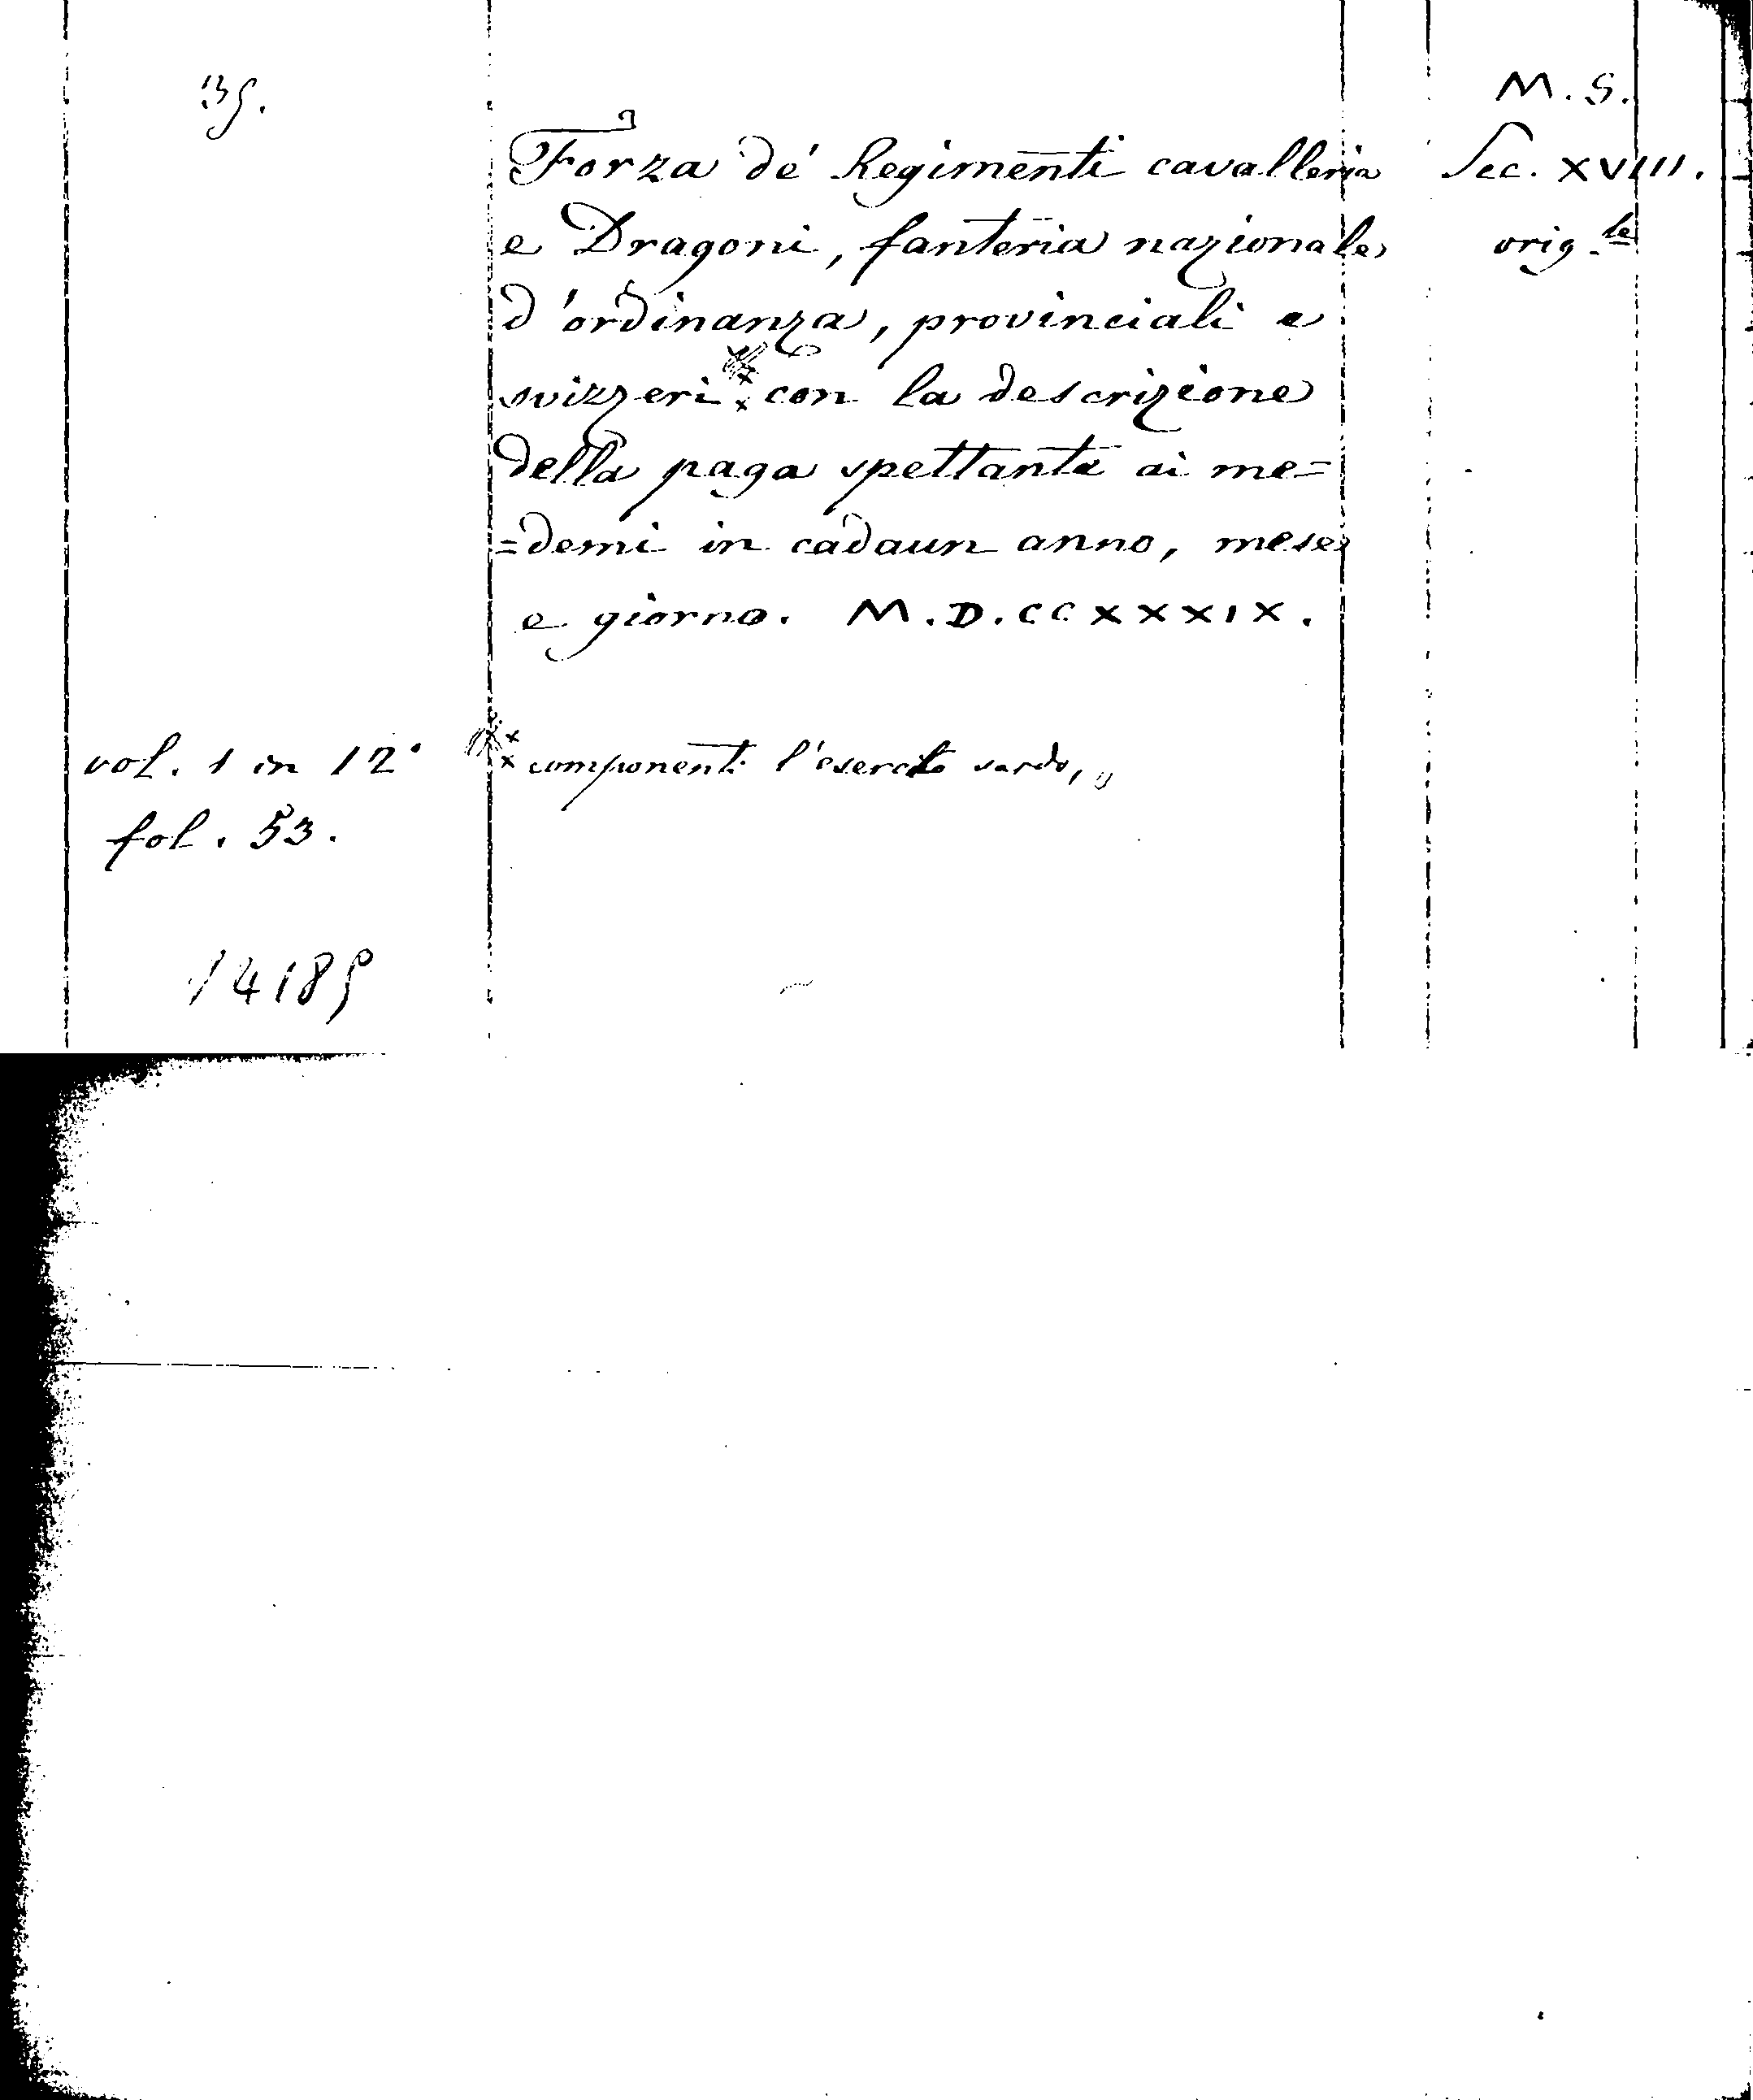 39.
M. S.
Forza de' Regimenti cavalleria
Sec. XVIII.
e Dragoni, fanteria nazionale
orig.le
d'ordinanza, provinciali e
svizzeri con la descrizione
della paga spettante ai me=
=demi in cadaun anno, mese
e giorno. M.D.CCXXXIX.
vol. 1 in 12°
componenti l'esercito sardo,
fol. 53.
14189